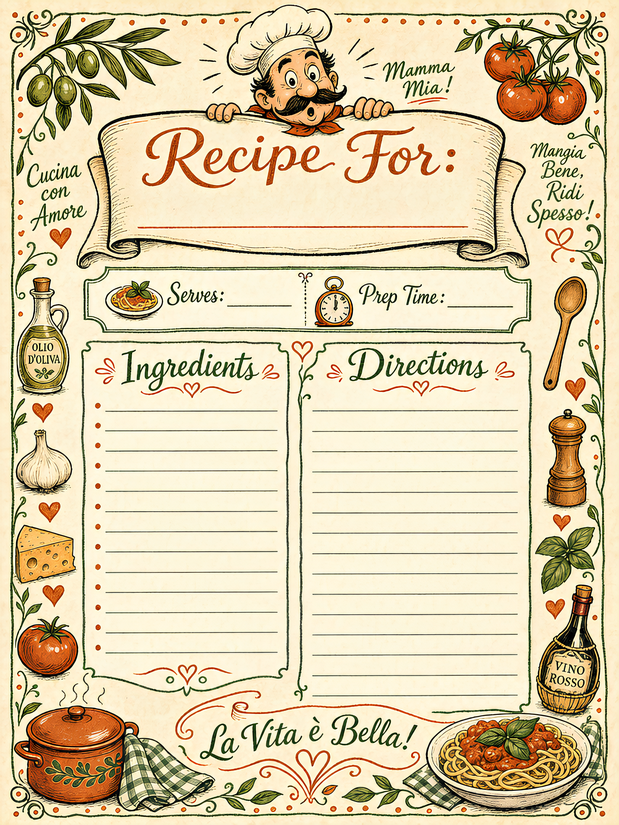 Mamma
Mia!
Recipe For:
Cucina
con
Amore
Mangia
Bene,
Ridi
Spesso!
Serves:
Prep Time:
OLIO
D'OLIVA
Ingredients
Directions
VINO
ROSSO
La Vita è Bella!